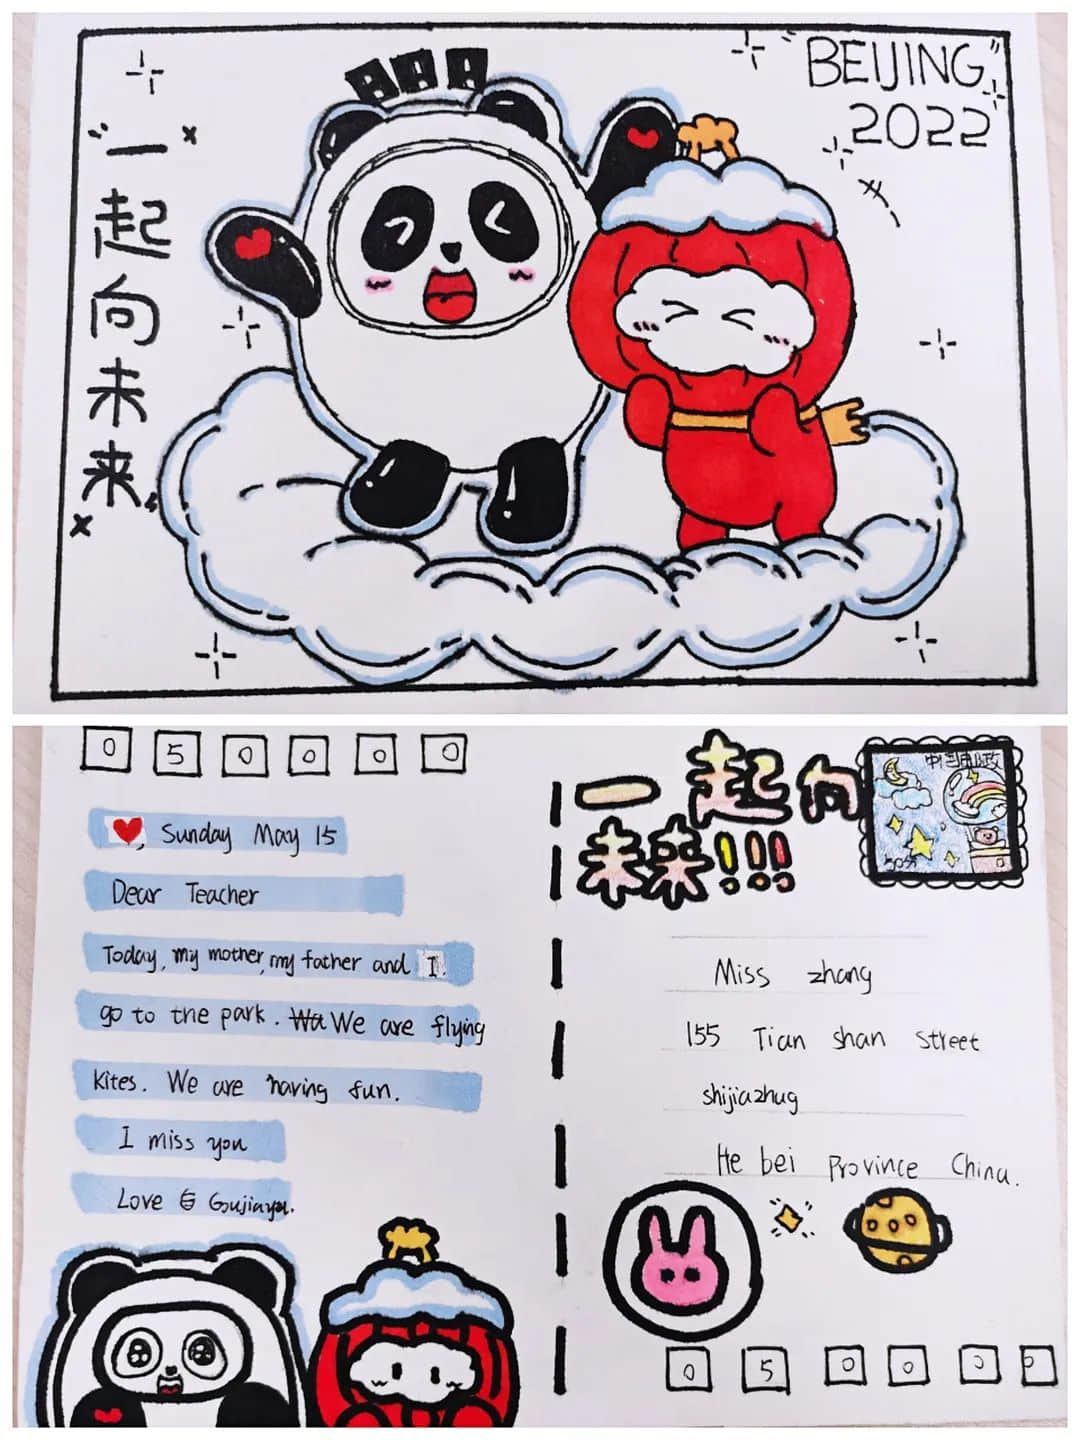 "BEIJING"
2022
"一起向未来"
0 5 0 0 0 0
, Sunday May 15
Dear Teacher
Today, my mother, my father and I
go to the park. We are flying
kites. We are having fun.
I miss you
Love
一起向
未来!!!
中国邮政
Miss zhang
155 Tian shan street
shijiazhug
He bei Province China.
0 5 0 0 0 0